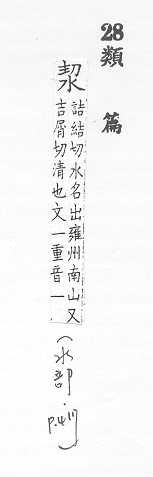 28
類篇
洯
詰結切水名出雍州南山又
吉屑切清也文一重音一.
(水部.